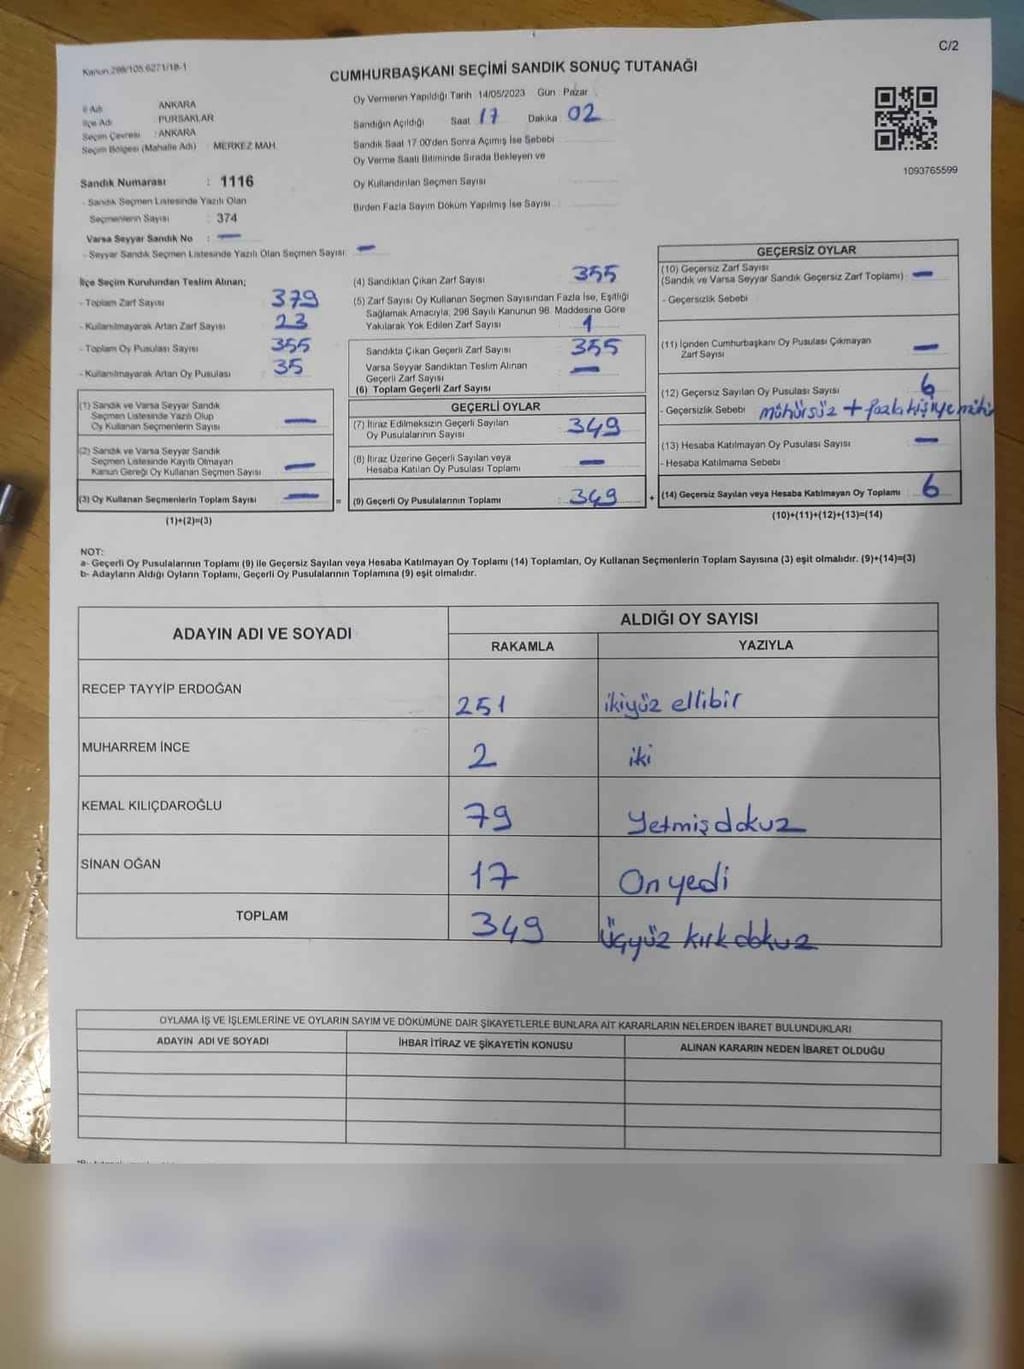 C/2
Kanun 298/105 6271/18-1
CUMHURBAŞKANI SEÇİMİ SANDIK SONUÇ TUTANAĞI
İl Adı ANKARA
İlçe Adı PURSAKLAR
Seçim Çevresi : ANKARA
Seçim Bölgesi (Mahalle Adı) MERKEZ MAH.
Sandık Numarası : 1116
- Sandık Seçmen Listesinde Yazılı Olan
Seçmenlerin Sayısı 374
Varsa Seyyar Sandık No : —
- Seyyar Sandık Seçmen Listesinde Yazılı Olan Seçmen Sayısı —
Oy Vermenin Yapıldığı Tarih 14/05/2023 Gün Pazar
Sandığın Açıldığı Saat 17 Dakika 02
Sandık Saat 17 00'den Sonra Açımış İse Sebebi
Oy Verme Saati Bitiminde Sırada Bekleyen ve
Oy Kullandırılan Seçmen Sayısı
Birden Fazla Sayım Döküm Yapılmış İse Sayısı
1093765599
İlçe Seçim Kurulundan Teslim Alınan;
- Toplam Zarf Sayısı 379
- Kullanılmayarak Artan Zarf Sayısı 23
- Toplam Oy Pusulası Sayısı 355
- Kullanılmayarak Artan Oy Pusulası 35
(1) Sandık ve Varsa Seyyar Sandık
Seçmen Listesinde Yazılı Olup
Oy Kullanan Seçmenlerin Sayısı —
(2) Sandık ve Varsa Seyyar Sandık
Seçmen Listesinde Kayıtlı Olmayan
Kanun Gereği Oy Kullanan Seçmen Sayısı —
(3) Oy Kullanan Seçmenlerin Toplam Sayısı — =
(1)+(2)=(3)
(4) Sandıktan Çıkan Zarf Sayısı 355
(5) Zarf Sayısı Oy Kullanan Seçmen Sayısından Fazla İse, Eşitliği
Sağlamak Amacıyla, 298 Sayılı Kanunun 98. Maddesine Göre
Yakılarak Yok Edilen Zarf Sayısı 1
Sandıkta Çıkan Geçerli Zarf Sayısı 355
Varsa Seyyar Sandıktan Teslim Alınan
Geçerli Zarf Sayısı —
(6) Toplam Geçerli Zarf Sayısı
GEÇERLİ OYLAR
(7) İtiraz Edilmeksizin Geçerli Sayılan
Oy Pusulalarının Sayısı 349
(8) İtiraz Üzerine Geçerli Sayılan veya
Hesaba Katılan Oy Pusulası Toplamı —
(9) Geçerli Oy Pusulalarının Toplamı 349 +
GEÇERSİZ OYLAR
(10) Geçersiz Zarf Sayısı
(Sandık ve Varsa Seyyar Sandık Geçersiz Zarf Toplamı) —
- Geçersizlik Sebebi
(11) İçinden Cumhurbaşkanı Oy Pusulası Çıkmayan
Zarf Sayısı —
(12) Geçersiz Sayılan Oy Pusulası Sayısı 6
- Geçersizlik Sebebi mühürsüz + fazla kişiye mühür
(13) Hesaba Katılmayan Oy Pusulası Sayısı —
- Hesaba Katılmama Sebebi
(14) Geçersiz Sayılan veya Hesaba Katılmayan Oy Toplamı 6
(10)+(11)+(12)+(13)=(14)
NOT:
a- Geçerli Oy Pusulalarının Toplamı (9) ile Geçersiz Sayılan veya Hesaba Katılmayan Oy Toplamı (14) Toplamları, Oy Kullanan Seçmenlerin Toplam Sayısına (3) eşit olmalıdır. (9)+(14)=(3)
b- Adayların Aldığı Oyların Toplamı, Geçerli Oy Pusulalarının Toplamına (9) eşit olmalıdır.
ADAYIN ADI VE SOYADI
ALDIĞI OY SAYISI
RAKAMLA YAZIYLA
RECEP TAYYİP ERDOĞAN 251 ikiyüz ellibir
MUHARREM İNCE 2 iki
KEMAL KILIÇDAROĞLU 79 Yetmiş dokuz
SİNAN OĞAN 17 On yedi
TOPLAM 349 Üçyüz kırk dokuz
OYLAMA İŞ VE İŞLEMLERİNE VE OYLARIN SAYIM VE DÖKÜMÜNE DAİR ŞİKAYETLERLE BUNLARA AİT KARARLARIN NELERDEN İBARET BULUNDUKLARI
ADAYIN ADI VE SOYADI İHBAR İTİRAZ VE ŞİKAYETİN KONUSU ALINAN KARARIN NEDEN İBARET OLDUĞU